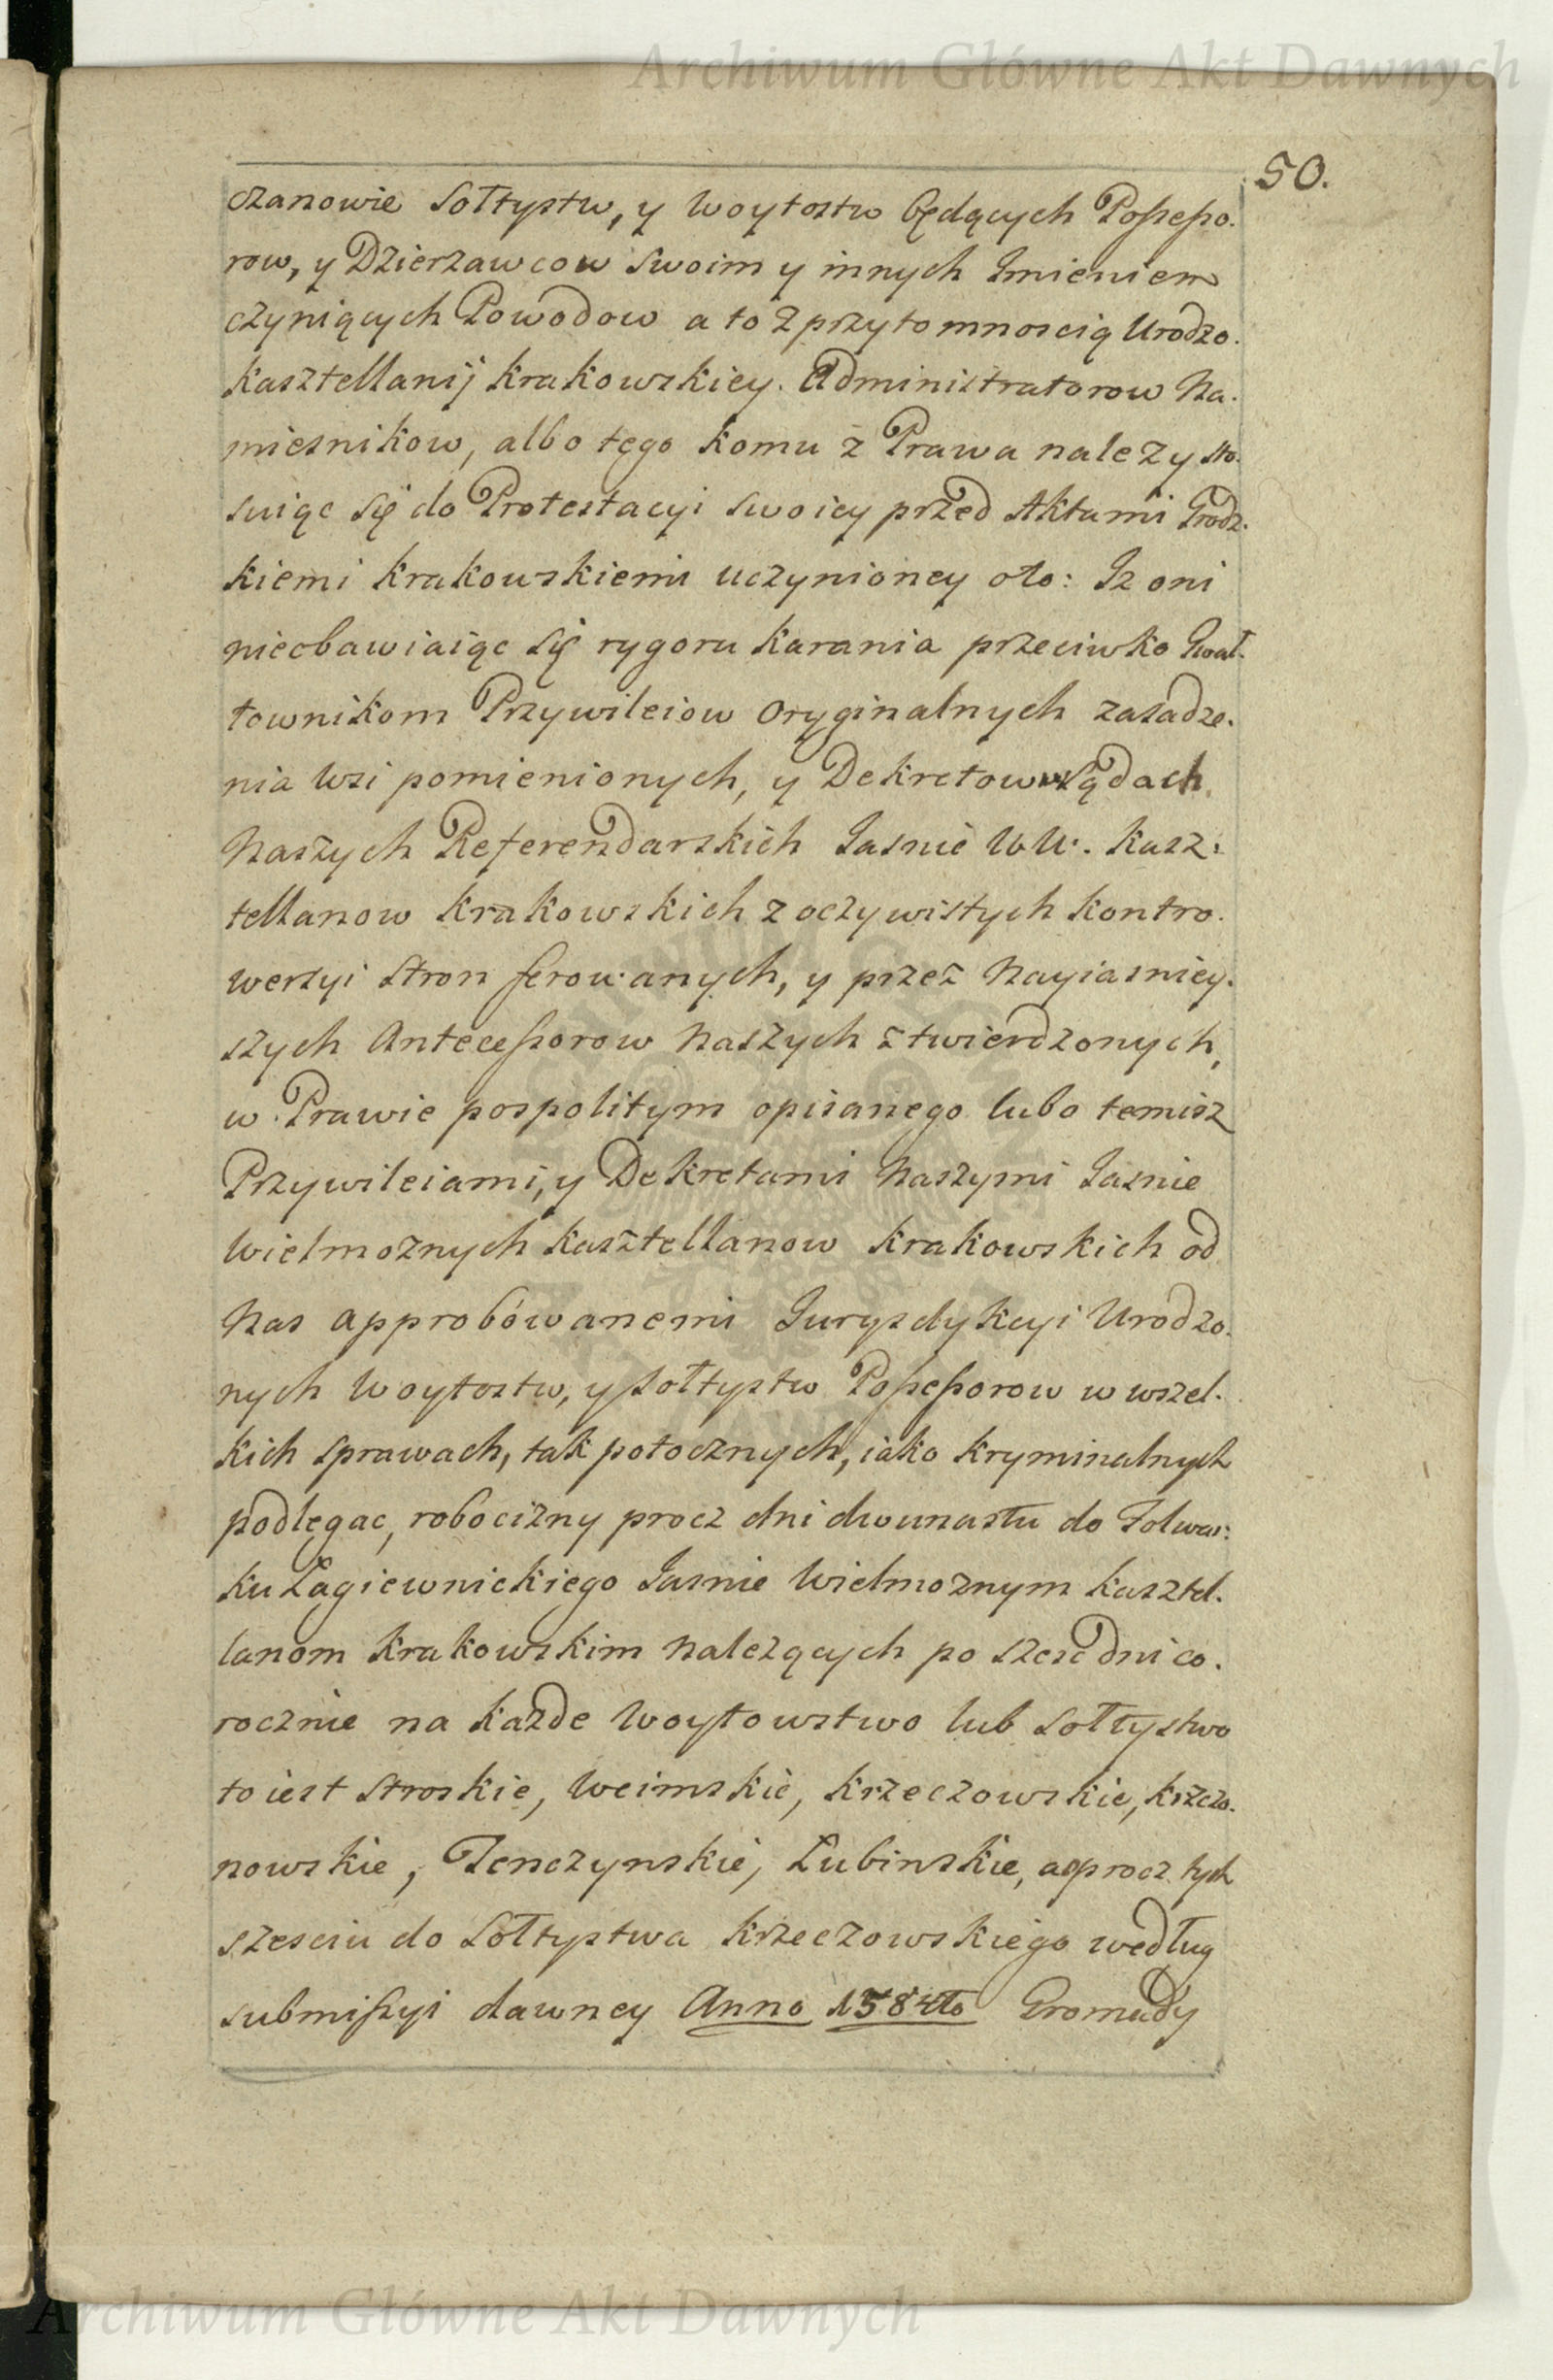 Archiwum Główne Akt Dawnych
50.
czanowie Sołtystw, y Woytostw będących Possesso.
row, y Dzierzawcow swoim y innych Imieniem
czyniących Powodow a to z przytomnoscią Urodzo.
Kasztellanij Krakowskiey. Administratorow Na.
miesnikow, albo tego komu z Prawa nalezy sto.
suiąc się do Protestacyi swoiey przed Aktami Grodz.
kiemi Krakowskiemi uczynioney oto: Iz oni
nieobawiaiąc się rygoru karania przeciwko Gwał.
townikom Przywileiow Oryginalnych zasadze.
nia Wsi pomienionych, y Dekretow w Sądach
Naszych Referendarskich Jasnie WW. Kasz:
tellanow Krakowskich z oczywistych kontro.
wersyi stron ferowanych, y przez Nayiasniey.
szych Antecessorow Naszych ztwierdzonych,
w Prawie pospolitym opisanego lubo temisz
Przywileiami, y Dekretami Naszymi Jasnie
Wielmoznych Kasztellanow Krakowskich od
Nas approbówanemi Jurysdykcyi Urodzo.
nych Woytostw, y Sołtystw Possessorow w wszel.
kich sprawach, tak potocznych, iako kryminalnych
podlegac, robocizny procz dni dwunastu do Folwar:
ku Łagiewnickiego Jasnie Wielmoznym Kasztel.
lanom Krakowskim nalezących po szesc dni co.
rocznie na kazde Woytowstwo lub Sołtystwo
to iest Stroskie, Weimskie, Krzeczowskie, Krzczo.
nowskie, Tenczynskie, Lubinskie, a oprocz tych
szesciu do Sołtystwa Krzeczowskiego według
submissyi dawney Anno 1584to Gromady
Archiwum Główne Akt Dawnych